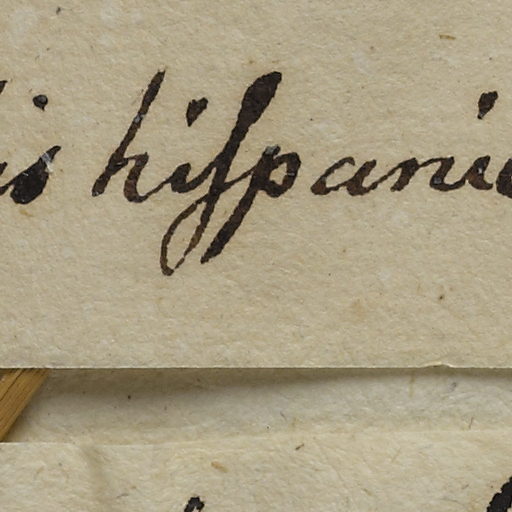 is hiſpanic